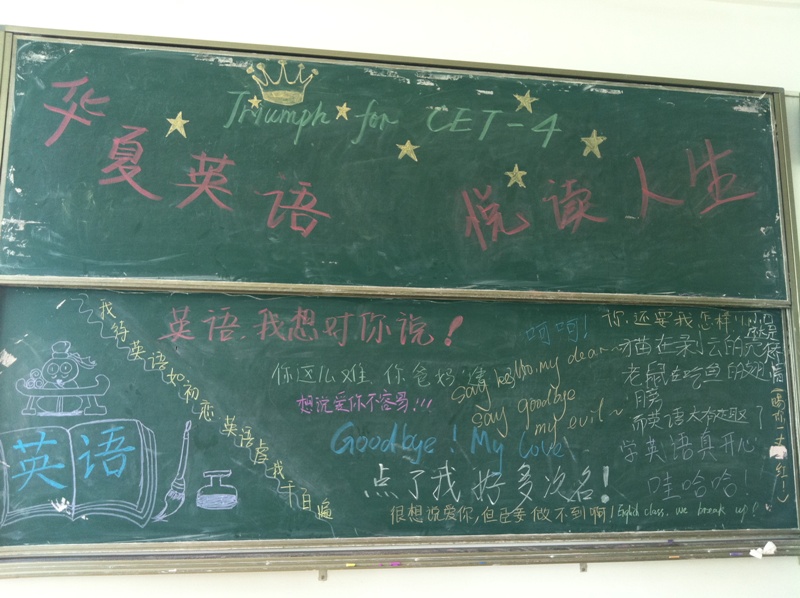 Triumph for CET-4
华夏英语 悦读人生
英语,我想对你说!
呵呵!
你,还要我怎样!
我待英语如初恋 英语虐我千百遍
你这么难 你爸妈
say hello, my dear
想说爱你不容易!!!
say goodbye
my evil~
Goodbye! My Love
猫在
老鼠在吃鱼的
而英语
学英语真开心
哇哈哈!
英语
点了我好多次名!
很想说爱你,但臣妾做不到啊!
English class, we break up!